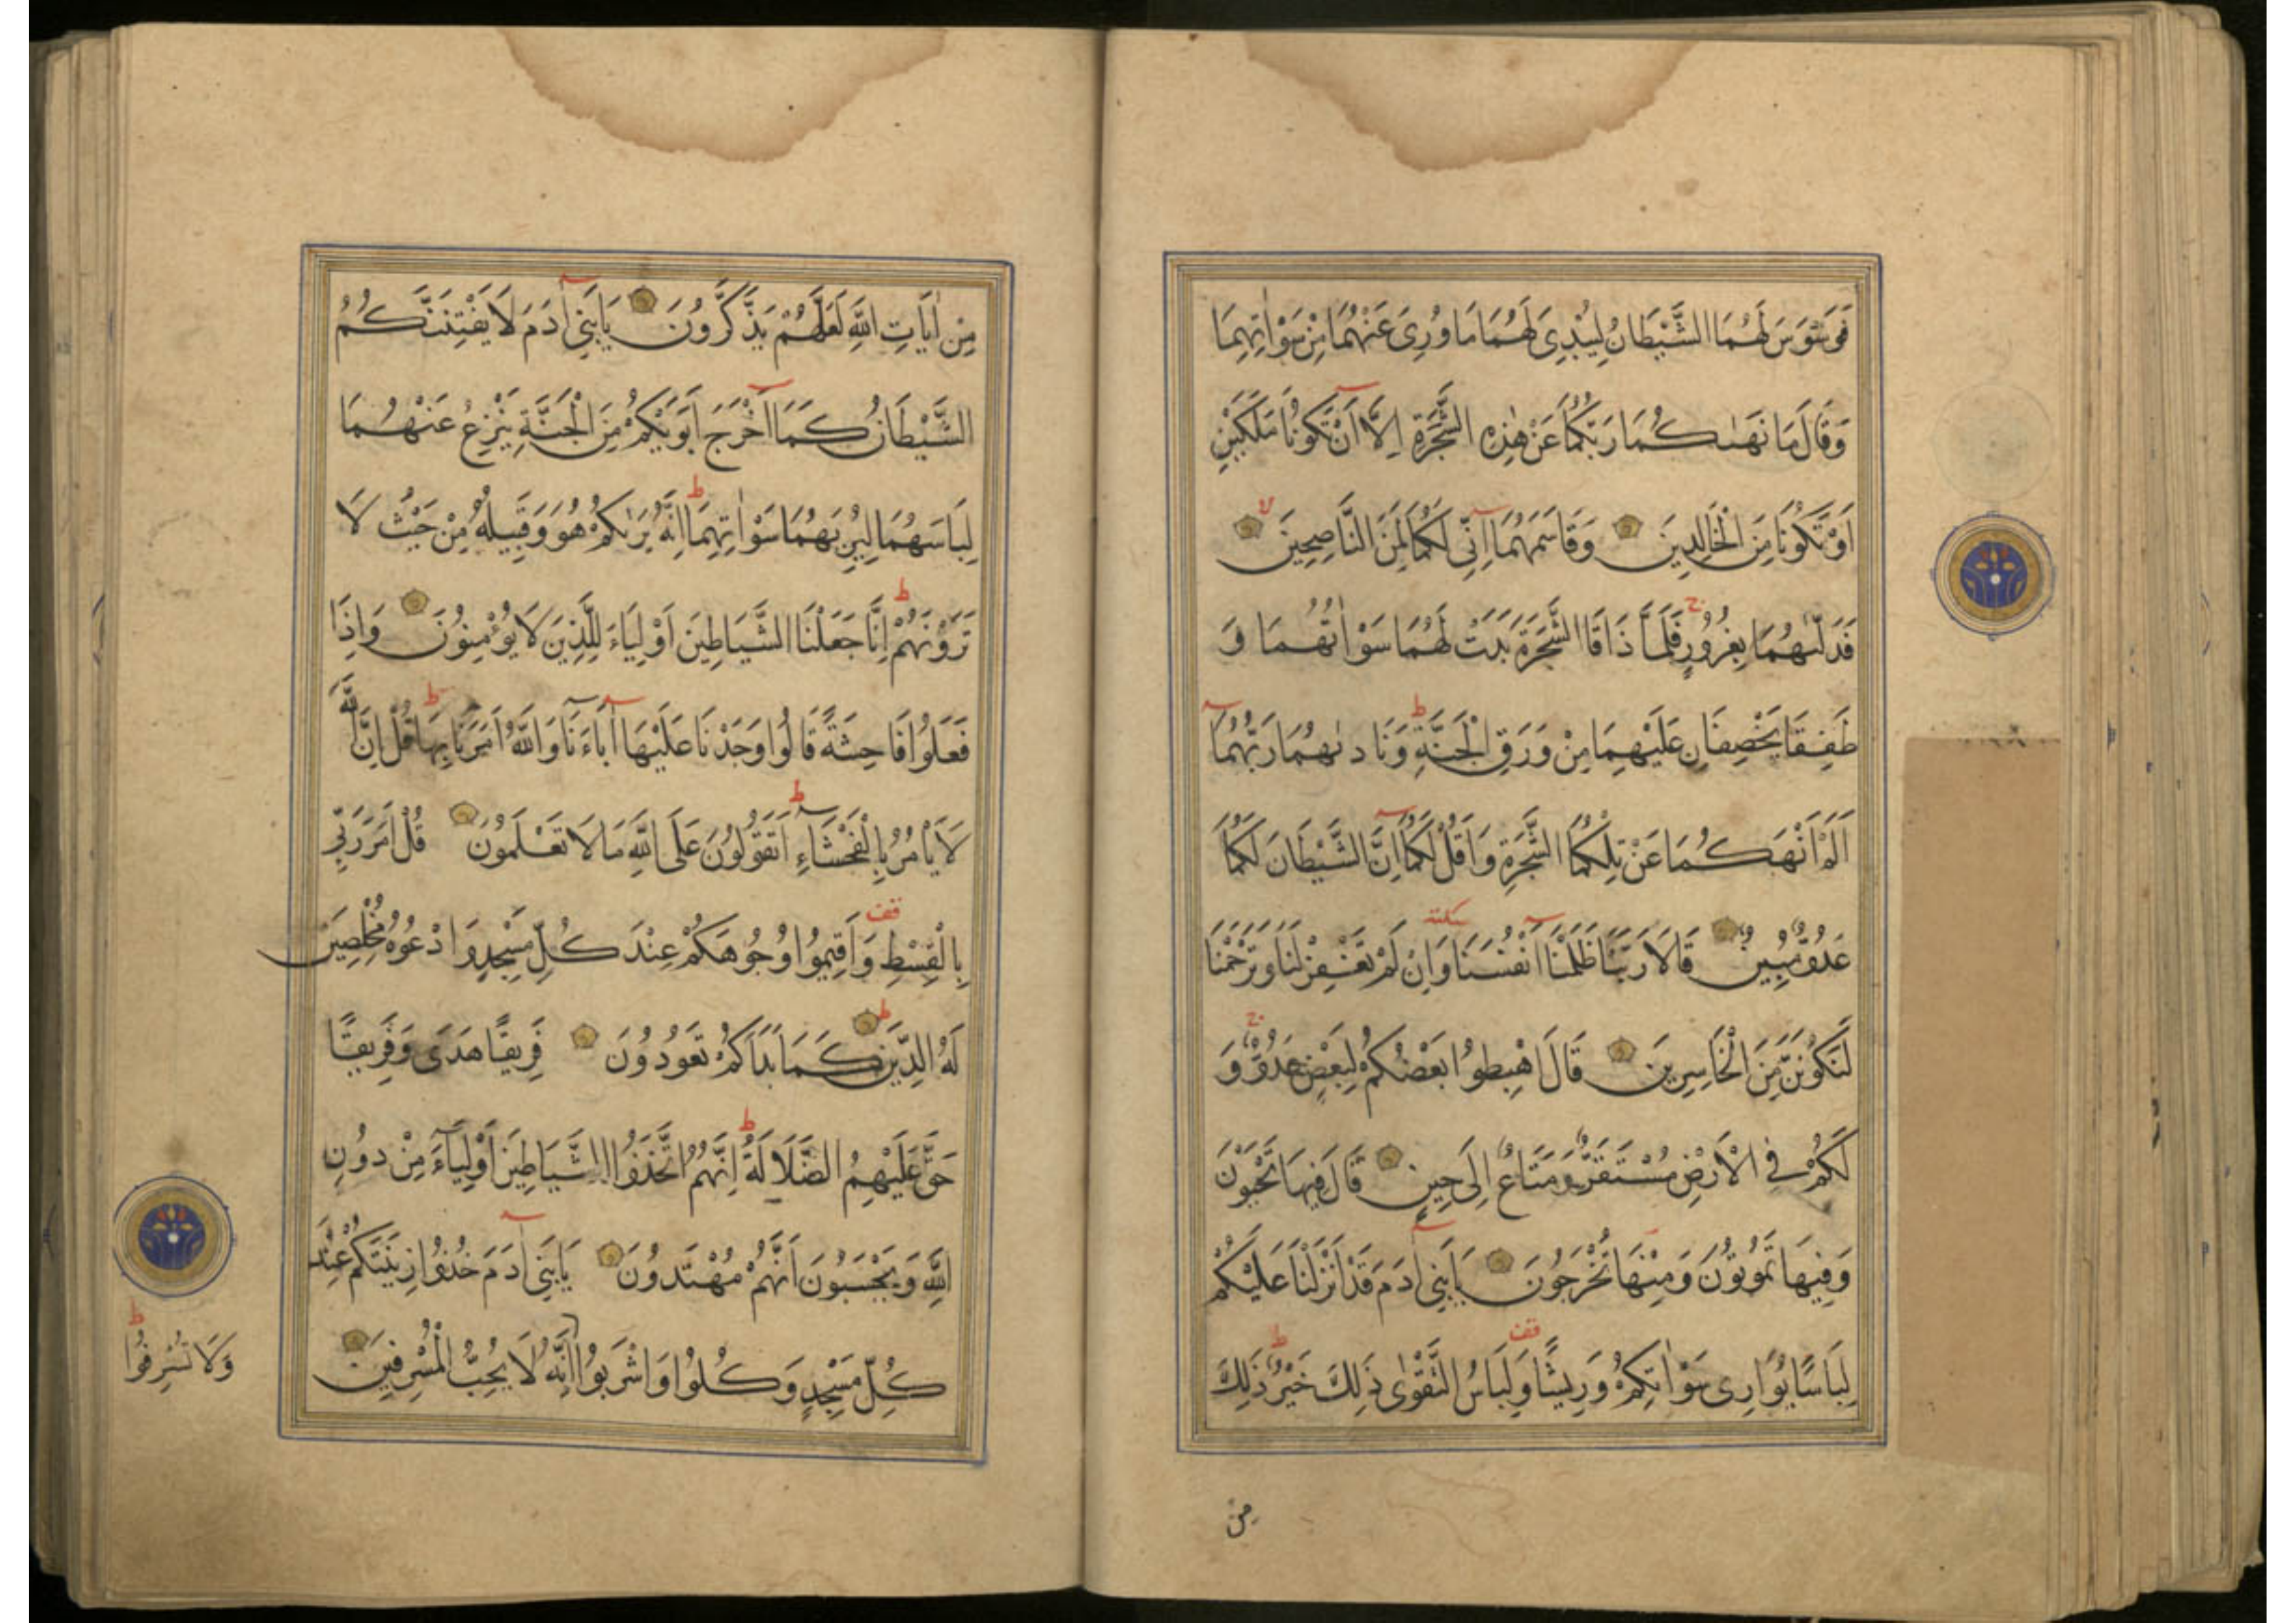 فَوَسْوَسَ لَهُمَا الشَّيْطَانُ لِيُبْدِىَ لَهُمَا مَا وُرِىَ عَنْهُمَا مِنْ سَوْاٰتِهِمَا
وَقَالَ مَا نَهٰىكُمَا رَبُّكُمَا عَنْ هٰذِهِ الشَّجَرَةِ اِلَّا اَنْ تَكُونَا مَلَكَيْنِ
اَوْ تَكُونَا مِنَ الْخَالِدِينَ وَقَاسَمَهُمَا اِنِّى لَكُمَا لَمِنَ النَّاصِحِينَ لا
فَدَلّٰىهُمَا بِغُرُورٍ ج فَلَمَّا ذَاقَا الشَّجَرَةَ بَدَتْ لَهُمَا سَوْاٰتُهُمَا وَ
طَفِقَا يَخْصِفَانِ عَلَيْهِمَا مِنْ وَرَقِ الْجَنَّةِ ط وَنَادٰىهُمَا رَبُّهُمَا
اَلَمْ اَنْهَكُمَا عَنْ تِلْكُمَا الشَّجَرَةِ وَاَقُلْ لَكُمَا اِنَّ الشَّيْطَانَ لَكُمَا
عَدُوٌّ مُبِينٌ قَالَا رَبَّنَا ظَلَمْنَا اَنْفُسَنَا سكتة وَاِنْ لَمْ تَغْفِرْ لَنَا وَتَرْحَمْنَا
لَنَكُونَنَّ مِنَ الْخَاسِرِينَ قَالَ اهْبِطُوا بَعْضُكُمْ لِبَعْضٍ عَدُوٌّ ج وَ
لَكُمْ فِى الْاَرْضِ مُسْتَقَرٌّ وَمَتَاعٌ اِلَى حِينٍ قَالَ فِيهَا تَحْيَوْنَ
وَفِيهَا تَمُوتُونَ وَمِنْهَا تُخْرَجُونَ يَابَنِى اٰدَمَ قَدْ اَنْزَلْنَا عَلَيْكُمْ
لِبَاسًا يُوَارِى سَوْاٰتِكُمْ وَرِيشًا قف وَلِبَاسُ التَّقْوٰى ذٰلِكَ خَيْرٌ ط ذٰلِكَ
مِنْ
مِنْ اٰيَاتِ اللّٰهِ لَعَلَّهُمْ يَذَّكَّرُونَ يَابَنِى اٰدَمَ لَا يَفْتِنَنَّكُمُ
الشَّيْطَانُ كَمَا اَخْرَجَ اَبَوَيْكُمْ مِنَ الْجَنَّةِ يَنْزِعُ عَنْهُمَا
لِبَاسَهُمَا لِيُرِيَهُمَا سَوْاٰتِهِمَا ط اِنَّهُ يَرٰىكُمْ هُوَ وَقَبِيلُهُ مِنْ حَيْثُ لَا
تَرَوْنَهُمْ ط اِنَّا جَعَلْنَا الشَّيَاطِينَ اَوْلِيَاءَ لِلَّذِينَ لَا يُؤْمِنُونَ وَاِذَا
فَعَلُوا فَاحِشَةً قَالُوا وَجَدْنَا عَلَيْهَا اٰبَاءَنَا وَاللّٰهُ اَمَرَنَا بِهَا ط قُلْ اِنَّ اللّٰهَ
لَا يَاْمُرُ بِالْفَحْشَاءِ ط اَتَقُولُونَ عَلَى اللّٰهِ مَا لَا تَعْلَمُونَ قُلْ اَمَرَ رَبِّى
بِالْقِسْطِ قف وَاَقِيمُوا وُجُوهَكُمْ عِنْدَ كُلِّ مَسْجِدٍ وَادْعُوهُ مُخْلِصِينَ
لَهُ الدِّينَ ط كَمَا بَدَاَكُمْ تَعُودُونَ فَرِيقًا هَدَى وَفَرِيقًا
حَقَّ عَلَيْهِمُ الضَّلَالَةُ ط اِنَّهُمُ اتَّخَذُوا الشَّيَاطِينَ اَوْلِيَاءَ مِنْ دُونِ
اللّٰهِ وَيَحْسَبُونَ اَنَّهُمْ مُهْتَدُونَ يَابَنِى اٰدَمَ خُذُوا زِينَتَكُمْ عِنْدَ
كُلِّ مَسْجِدٍ وَكُلُوا وَاشْرَبُوا اِنَّهُ لَا يُحِبُّ الْمُسْرِفِينَ
وَلَا تُسْرِفُوا ط